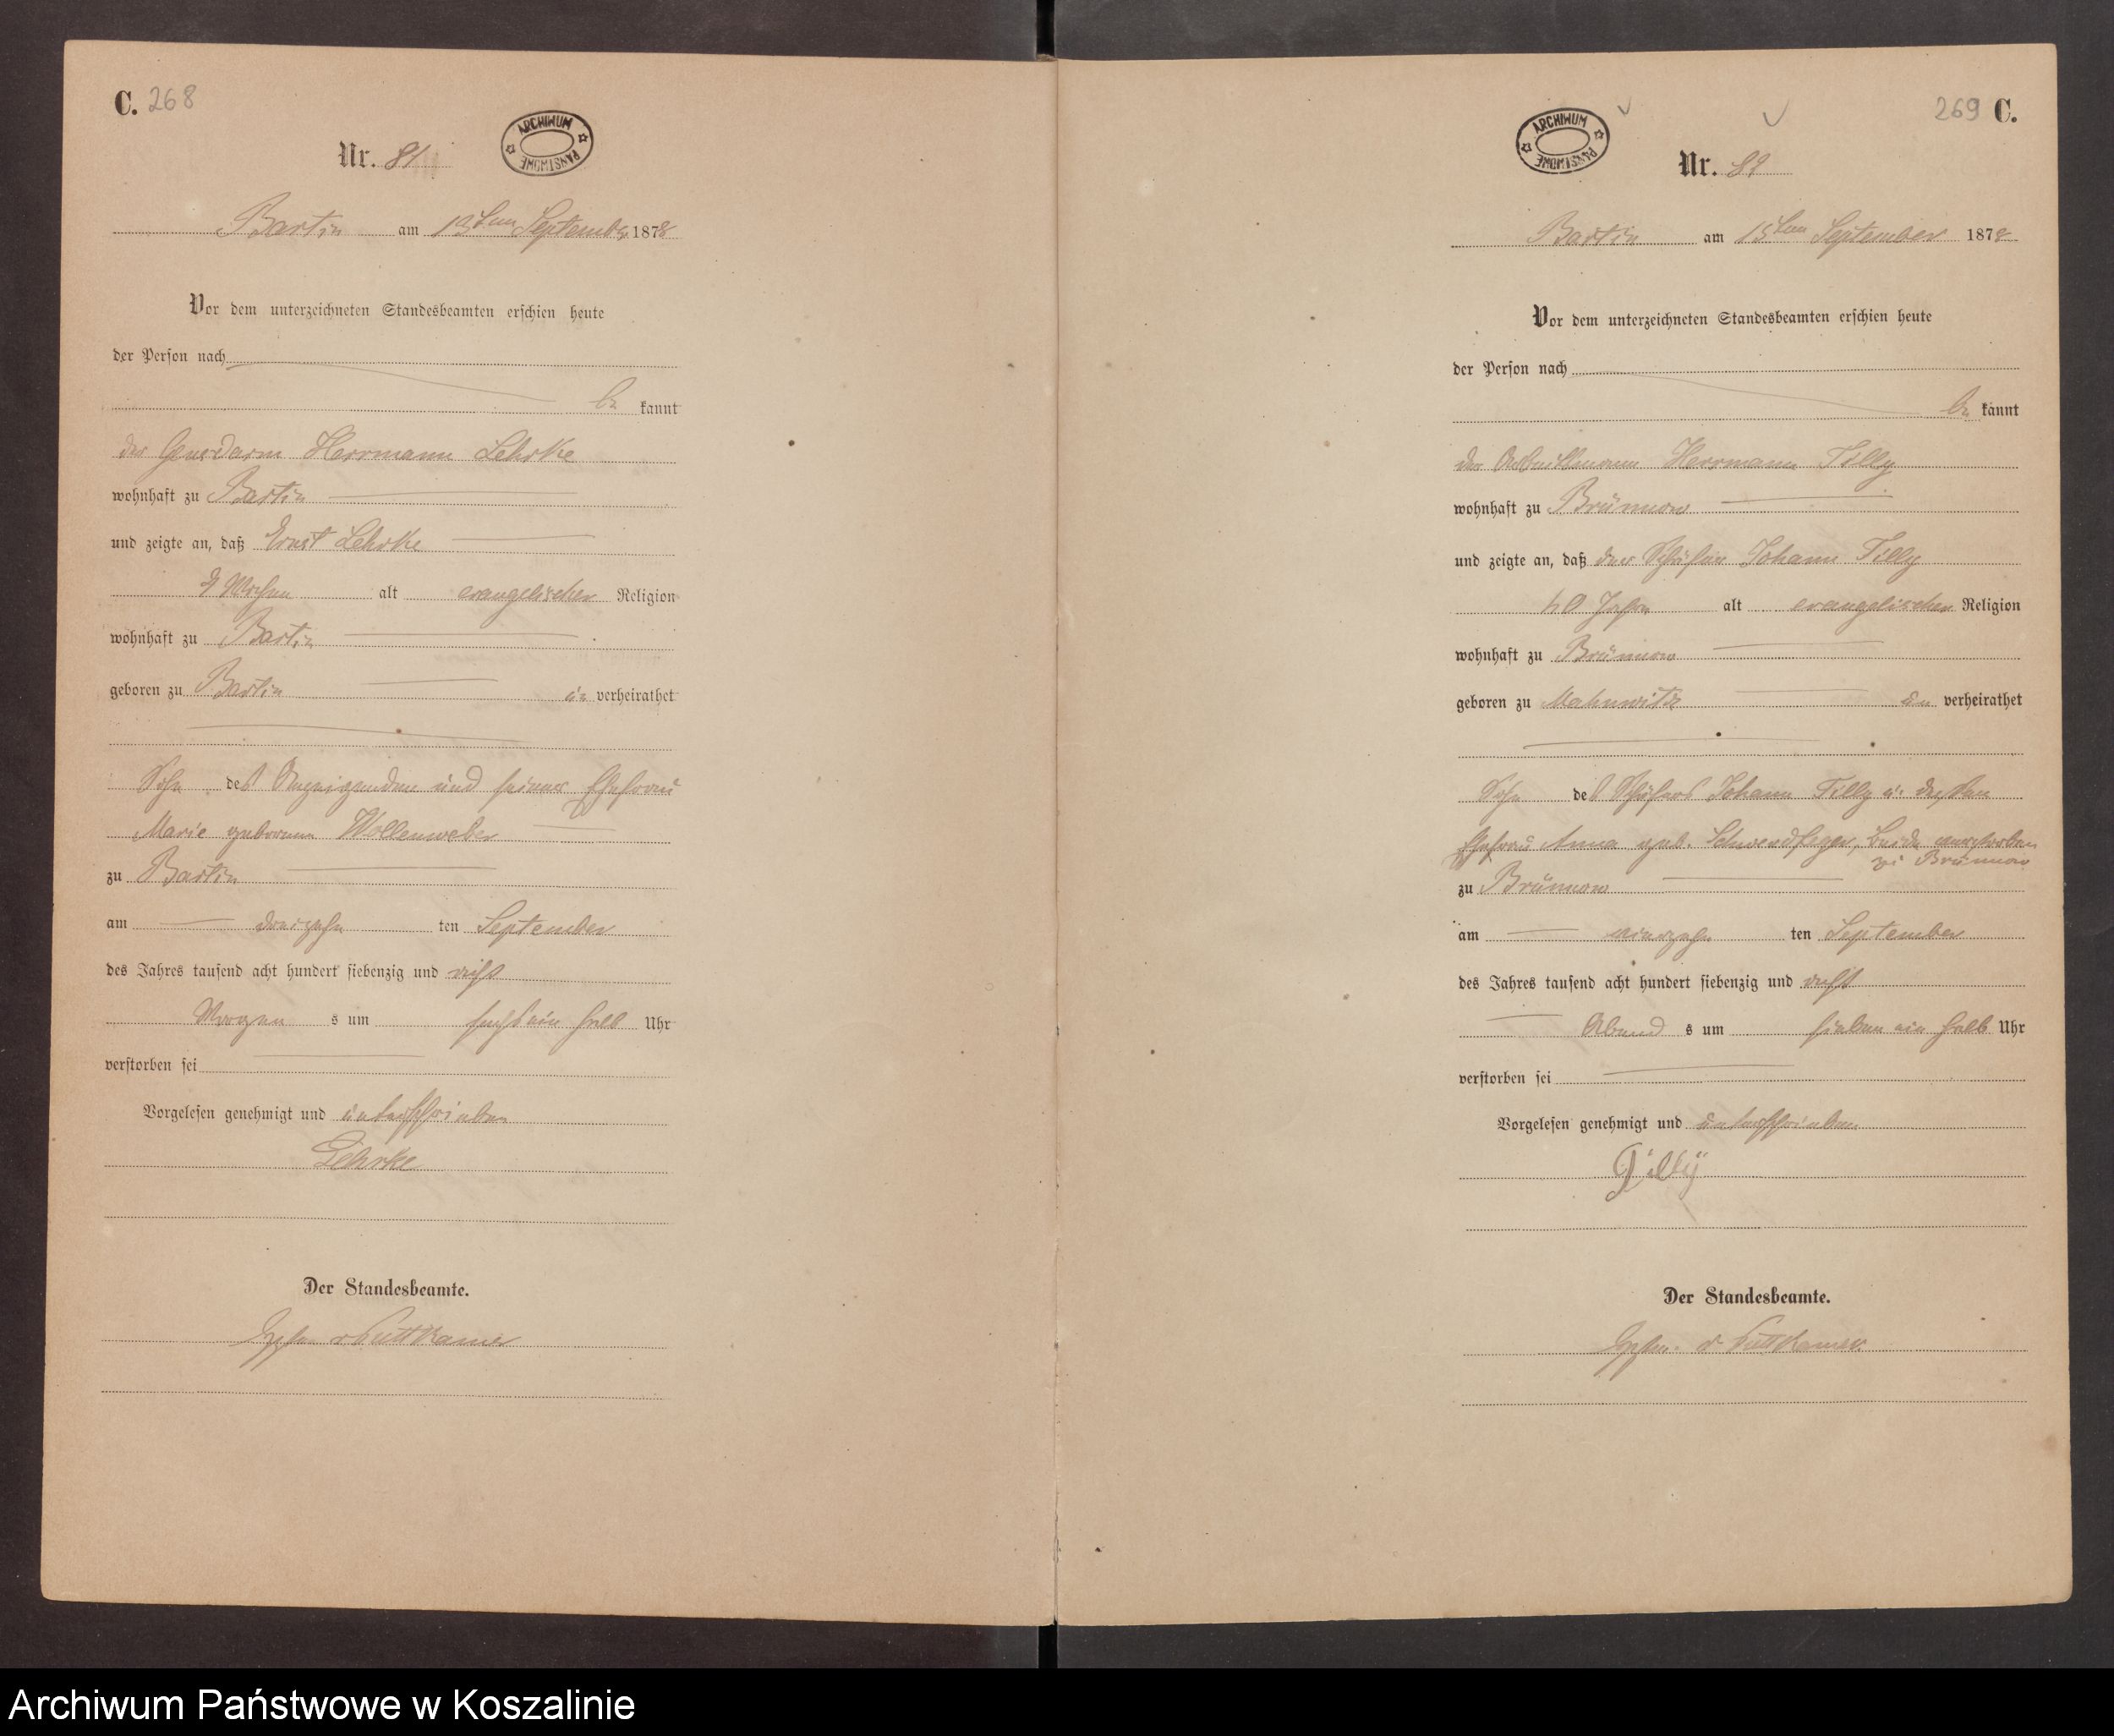 C. 268
ARCHIWUM PAŃSTWOWE
Nr. 81
Bartin am 13ten September 1878
Vor dem unterzeichneten Standesbeamten erschien heute
der Person nach
be kannt
der Gensdarm Herrmann Lehrke
wohnhaft zu Bartin
und zeigte an, daß Ernst Lehrke
Wochen alt evangelischer Religion
wohnhaft zu Bartin
geboren zu Bartin un verheirathet
Sohn des Anzeigenden und seiner Ehefrau
Marie geborenen Wollenweber
zu Bartin
am dreizehn ten September
des Jahres tausend acht hundert siebenzig und acht
Morgen s um sechs ein halb Uhr
verstorben sei
Vorgelesen genehmigt und unterschrieben
Lehrke
Der Standesbeamte.
v Puttkamer
269 C.
ARCHIWUM PAŃSTWOWE
Nr. 82
Bartin am 15ten September 1878
Vor dem unterzeichneten Standesbeamten erschien heute
der Person nach
be kannt
der Herrmann Tilly
wohnhaft zu Brünnow
und zeigte an, daß der Schäfer Johann Tilly
Jahr alt evangelischer Religion
wohnhaft zu Brünnow
geboren zu Mahnwitz un verheirathet
Sohn des Schäfers Johann Tilly u. dessen
Ehefrau Anna geb. Schwerdfeger, beide verstorben
zu Brünnow
zu Brünnow
am vierzehn ten September
des Jahres tausend acht hundert siebenzig und acht
Abend s um sieben ein halb Uhr
verstorben sei
Vorgelesen genehmigt und unterschrieben
Tilly
Der Standesbeamte.
v Puttkamer
Archiwum Państwowe w Koszalinie